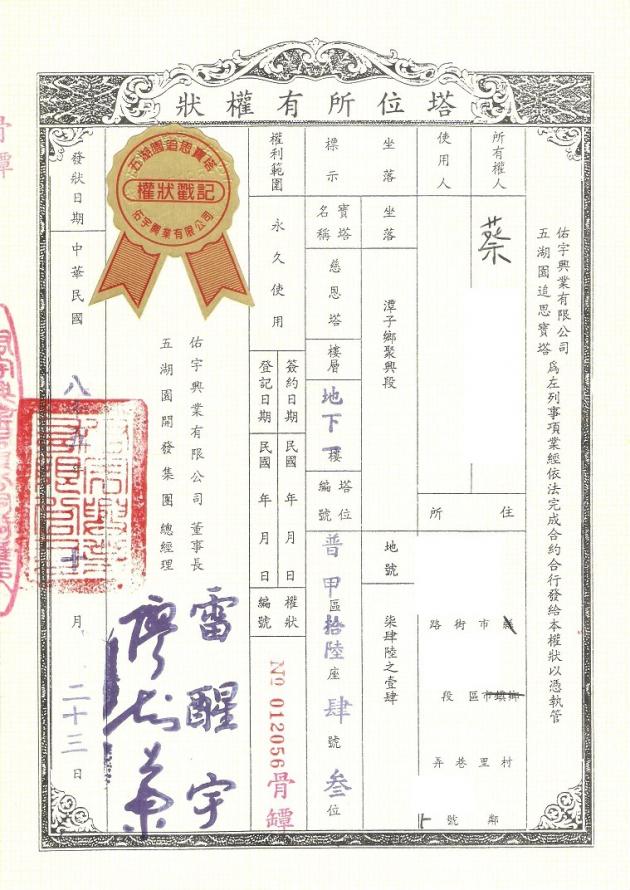 塔位所有權狀
佑宇興業有限公司
五湖園追思寶塔
為左列事項業經依法完成合約合行發給本權狀以憑執管
所有權人
蔡
使用人
住所
縣市街路
鄉鎮市區段
村里巷弄
鄰號
坐落
坐落
潭子鄉聚興段
地號
柒肆陸之壹肆
標示
寶塔名稱
慈恩塔
樓層
地下一樓
塔位編號
普甲區拾陸座肆號叁位
權利範圍
永久使用
簽約日期
民國 年 月 日
登記日期
民國 年 月 日
權狀編號
No 012056
骨罈
五湖園追思寶塔
權狀戳記
佑宇興業有限公司
佑宇興業有限公司 董事長
雷醒宇
五湖園開發集團 總經理
發狀日期
中華民國
八
月
二十三
日
骨罈